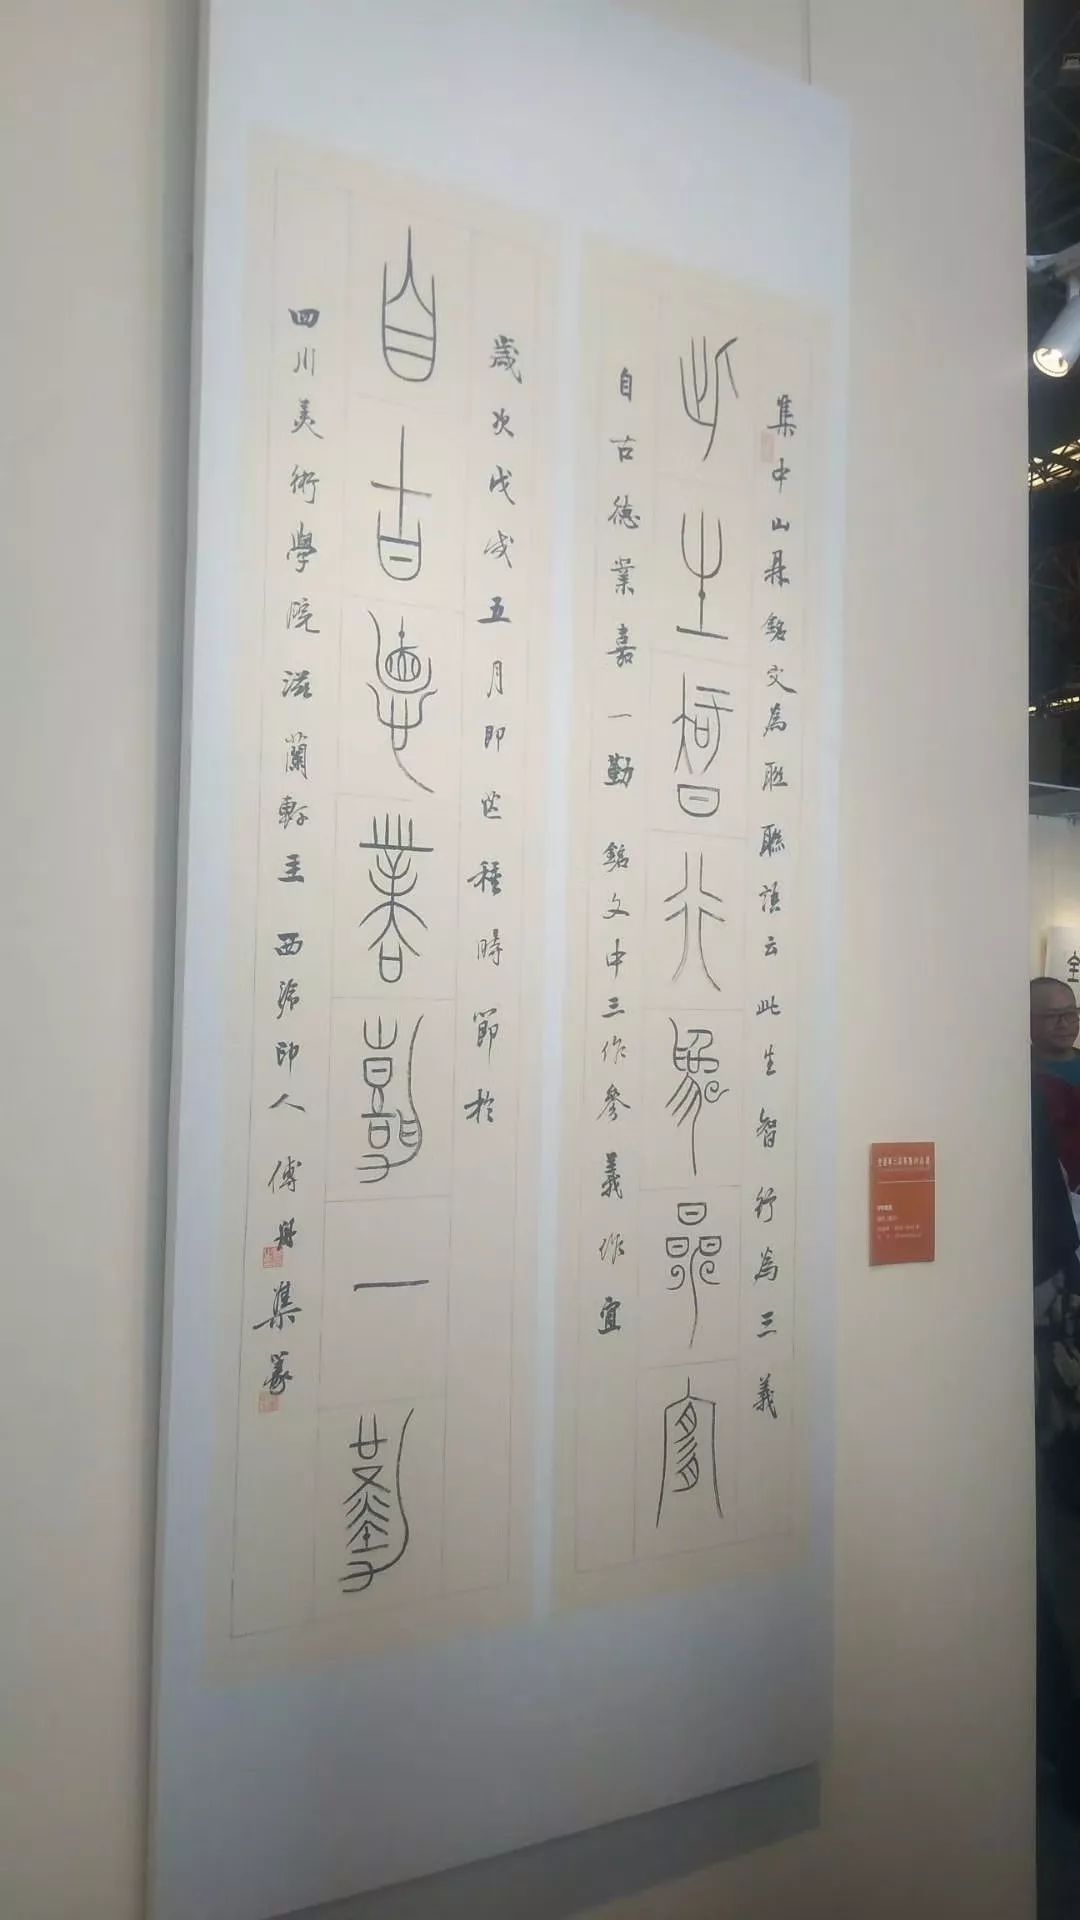 集中山鼎銘文為聯聯語云此生智行為三義
此生智行為參宜
自古德業嘉一勤 銘文中三作參義作宜
歲次戊戌五月即芒種時節於
自古德業嘉一勤
四川美術學院滋蘭軒主 西泠印人 傅舟集篆